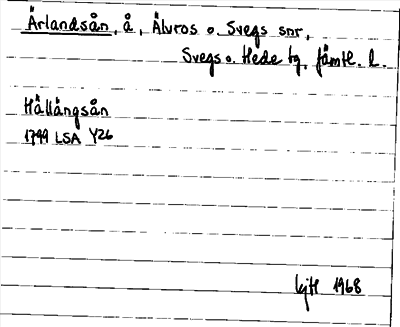 Ärlandsån, å, Älvros o. Svegs snr,
Svegs o. Hede tg, Jämtl. l.
Hållångsån
1799 LSA Y26
1968